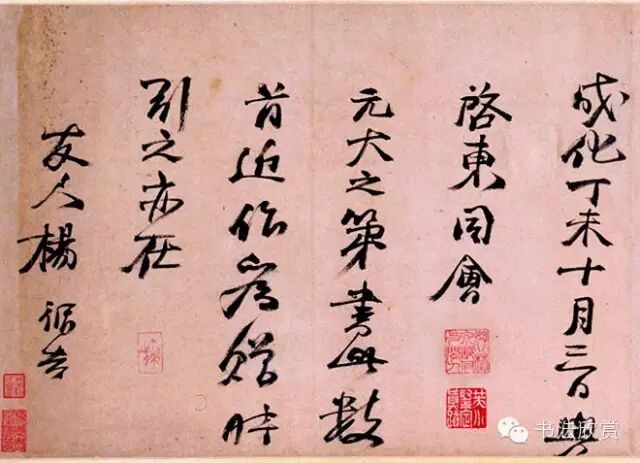 成化丁未十月三日與
啓東同會
元大之第書此數
首近作為贈時
引之亦在
友人楊循吉
书法欣赏